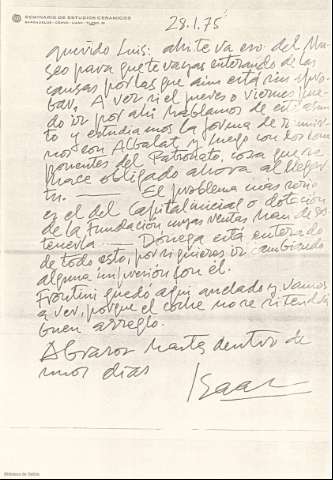 SEMINARIO DE ESTUDIOS CERAMICOS
28.1.75
querido Luis: ahi te va eso del Mu-
seo para que te vayas enterando de las
causas por las que aun está sin apro-
bar. A ver si el jueves o viernes pue-
do ir por ahí hablamos de este asun-
to y estudiamos la forma de reunir-
nos con Albalat y luego con los com-
ponentes del Patronato, cosa que se
hace obligado ahora al llegar
tu. El problema más serio
es el del Capital inicial o dotación
de la Fundación cuyas rentas han de sos-
tenerla — Donega está enterado
de todo esto, por si quieres ir cambiando
alguna impresión con él.
Frontini quedó aquí anclado y vamos
a ver, porque el coche no
buen arreglo.
Abrazos hasta dentro de
unos días
Isaac
Biblioteca de Galicia